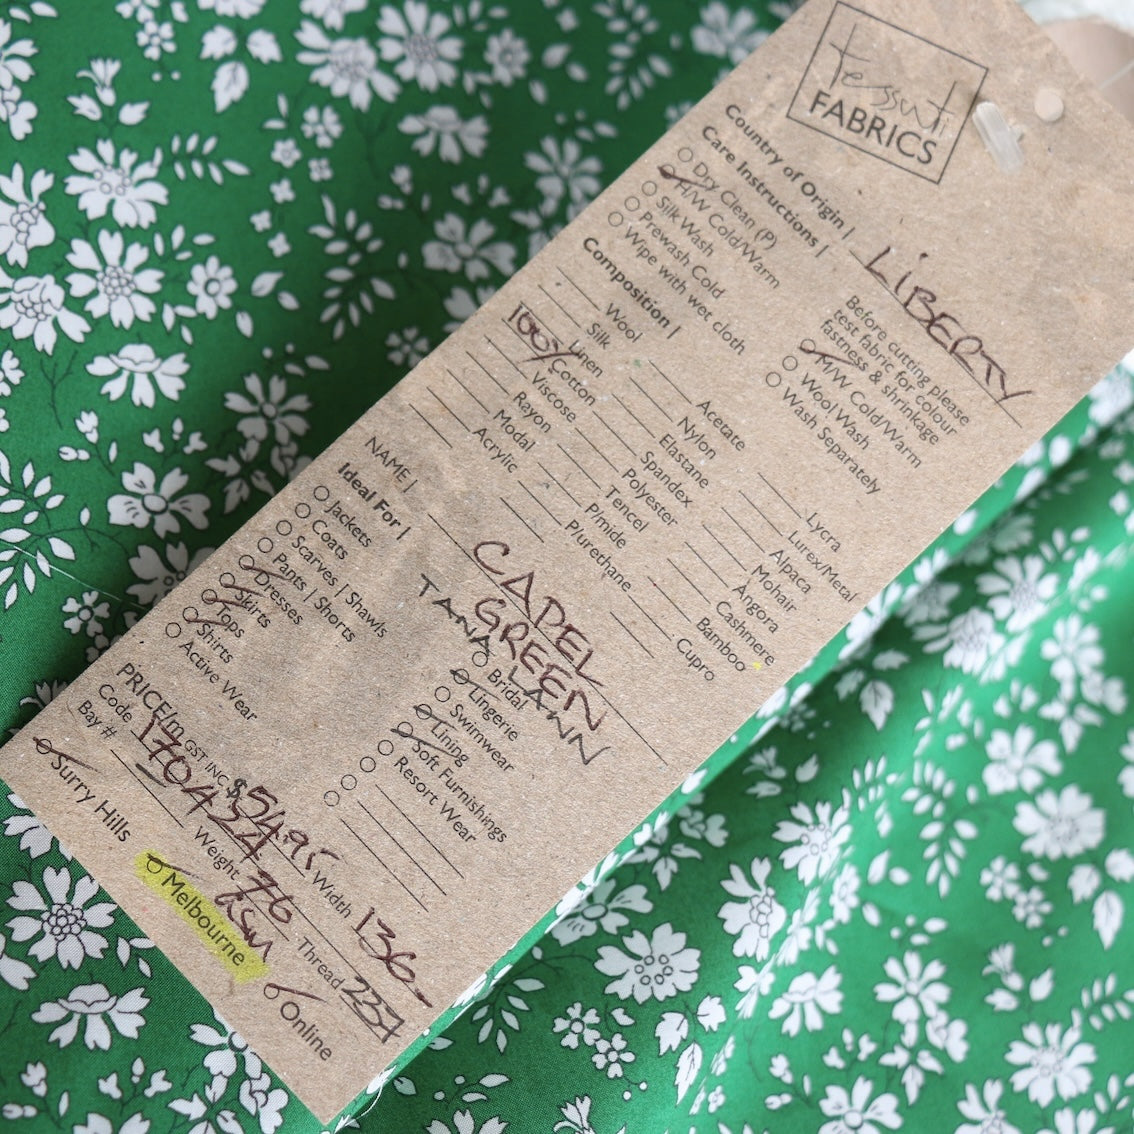 Tessuti
FABRICS
Country of Origin | LIBERTY
Care Instructions |
Dry Clean (P)
H/W Cold/Warm
Silk Wash
Prewash Cold
Wipe with wet cloth
Before cutting please
test fabric for colour
fastness & shrinkage
M/W Cold/Warm
Wool Wash
Wash Separately
Composition |
Wool
Silk
Linen
100% Cotton
Viscose
Rayon
Modal
Acrylic
Acetate
Nylon
Elastane
Spandex
Polyester
Tencel
P/mide
P/urethane
Lycra
Lurex/Metal
Alpaca
Mohair
Angora
Cashmere
Bamboo
Cupro
NAME | CAPEL
GREEN
TANA LAWN
Ideal For |
Jackets
Coats
Scarves | Shawls
Pants | Shorts
Dresses
Skirts
Tops
Shirts
Active Wear
Bridal
Lingerie
Swimwear
Lining
Soft Furnishings
Resort Wear
PRICE/m GST INC $54.95 Width 136
Code 170424 Weight 76 gsm Thread 237
Bay #
Surry Hills
Melbourne
Online